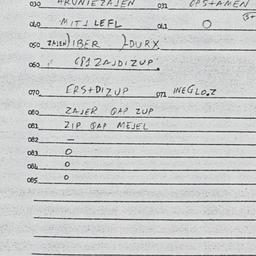 030 HRUNIEZAJEN 031 OPS+AMEN
040 MITJ LEFL 041 O
050 ZAJEN) IBER ZDURX
060 CPJZAJDIZUP.
070 ERS+DIZUP 071 INEGLO.Z
080 ZAJER QAP ZUP
081 ZIP QAP MEJEL
082 –
083 O
084 O
085 O